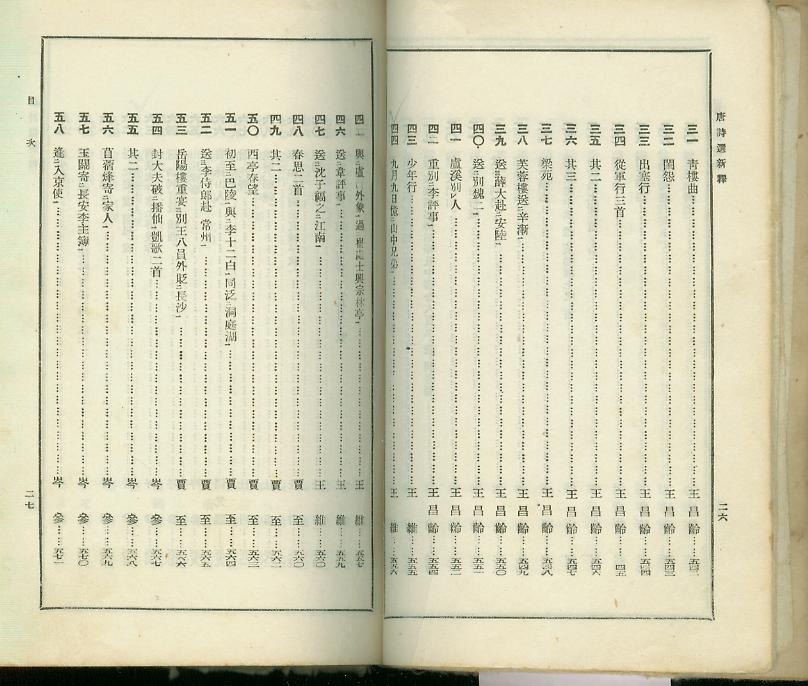 唐詩選新釋
二六
三一 靑樓曲 王昌齡 五四二
三二 閨怨 王昌齡 五四三
三三 出塞行 王昌齡 五四四
三四 從軍行三首 王昌齡 五四五
三五 其二 王昌齡 五四六
三六 其三 王昌齡 五四七
三七 梁苑 王昌齡 五四八
三八 芙蓉樓送辛漸 王昌齡 五四九
三九 送薛大赴安陸 王昌齡 五五〇
四〇 送別魏二 王昌齡 五五一
四一 盧溪別人 王昌齡 五五二
四二 重別李評事 王昌齡 五五四
四三 少年行 王維 五五五
四四 九月九日憶山中兄弟 王維 五五六
與盧 外象過 處士興宗林亭 王維 五五七
四六 送韋評事 王維 五五九
四七 送沈子福之江南 王維 五六〇
四八 春思二首 賈至 五六〇
四九 其二 賈至 五六二
五〇 西亭春望 賈至 五六三
五一 初至巴陵與李十二白同泛洞庭湖 賈至 五六四
五二 送李侍郎赴常州 賈至 五六五
五三 岳陽樓重宴別王八員外貶長沙 賈至 五六六
五四 封大夫破播仙凱歌二首 岑參 五六七
五五 其二 岑參 五六八
五六 苜蓿烽寄家人 岑參 五六九
五七 玉關寄長安李主簿 岑參 五七〇
五八 逢入京使 岑參 五七一
目次
二七